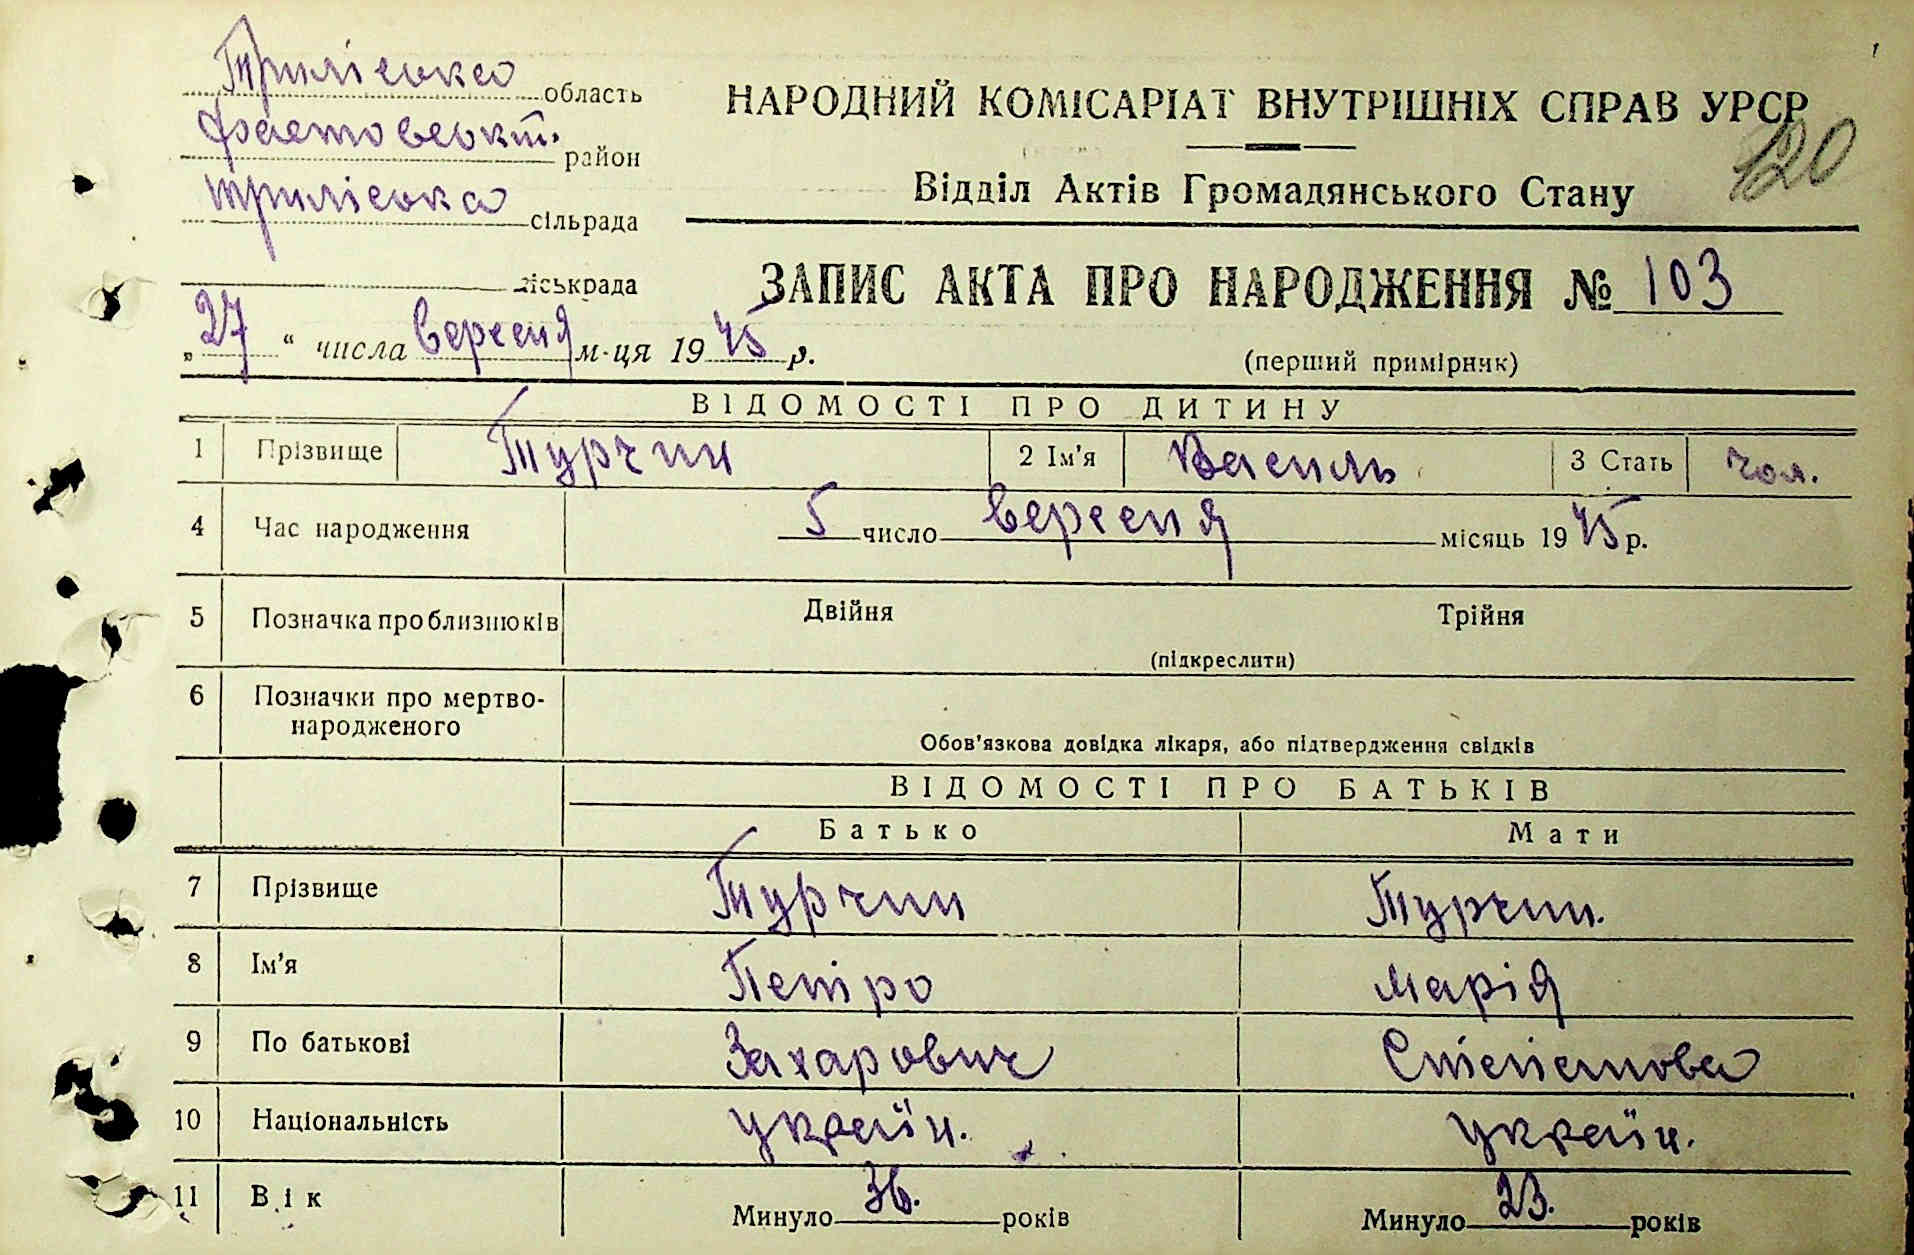 Трилісько область
Фастовськт. район
трилісько сільрада
міськрада
„27“ числа вересня м-ця 1945 р.
НАРОДНИЙ КОМІСАРІАТ ВНУТРІШНІХ СПРАВ УРСР
120
Відділ Актів Громадянського Стану
ЗАПИС АКТА ПРО НАРОДЖЕННЯ № 103
(перший примірник)
ВІДОМОСТІ ПРО ДИТИНУ
1 Прізвище Турчин 2 Ім'я Василь 3 Стать чол.
4 Час народження 5 число вересня місяць 1945 р.
5 Позначка про близнюків Двійня Трійня
(підкреслити)
6 Позначки про мертво-
народженого
Обов'язкова довідка лікаря, або підтвердження свідків
ВІДОМОСТІ ПРО БАТЬКІВ
Батько Мати
7 Прізвище Турчин Турчин.
8 Ім'я Петро Марія
9 По батькові Захарович
10 Національність україн. україн.
11 Вік Минуло 36. років Минуло 23. років